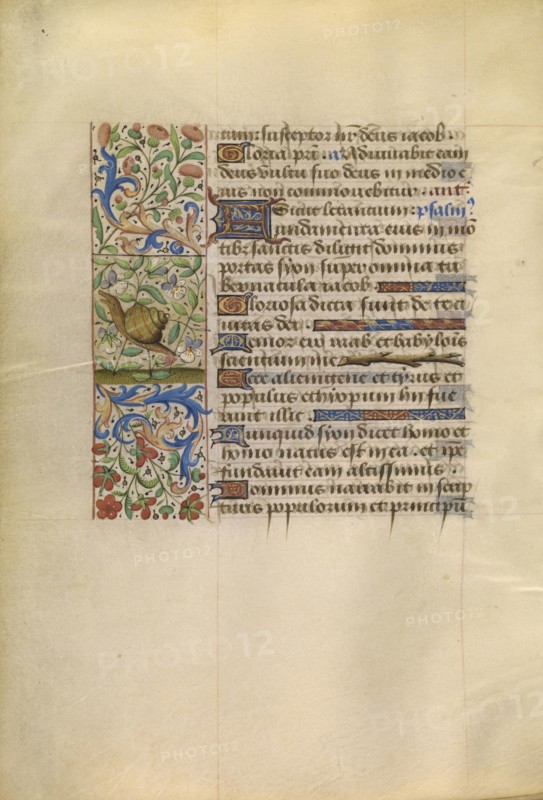 tum: susceptor nr̄ deus iacob.
Gloria pr̄i. a Adiuvabit eam
deus vultu suo deus in medio e
ius non commovebitur. ant.
Sicut letantium: psalm̄
Fundamenta eius in mō
tibꝫ sanctis diligit dominus
portas syon super omnia ta
bernacula iacob.
Gloriosa dicta sunt de te ci
uitas dei.
Memor ero raab et babylonis
scientium me
Ecce alienigene et tyrus et
populus ethyopum hii fue
runt illic.
Nunquid syon dicet homo et
homo natus est in ea. et ip̄e
fundauit eam altissimus.
Dominus narrabit in scrip
turis populorum et principū
PHOTO12
PHOTO12
PHOTO12
PHOTO12
PHOTO12
PHOTO12
PHOTO12